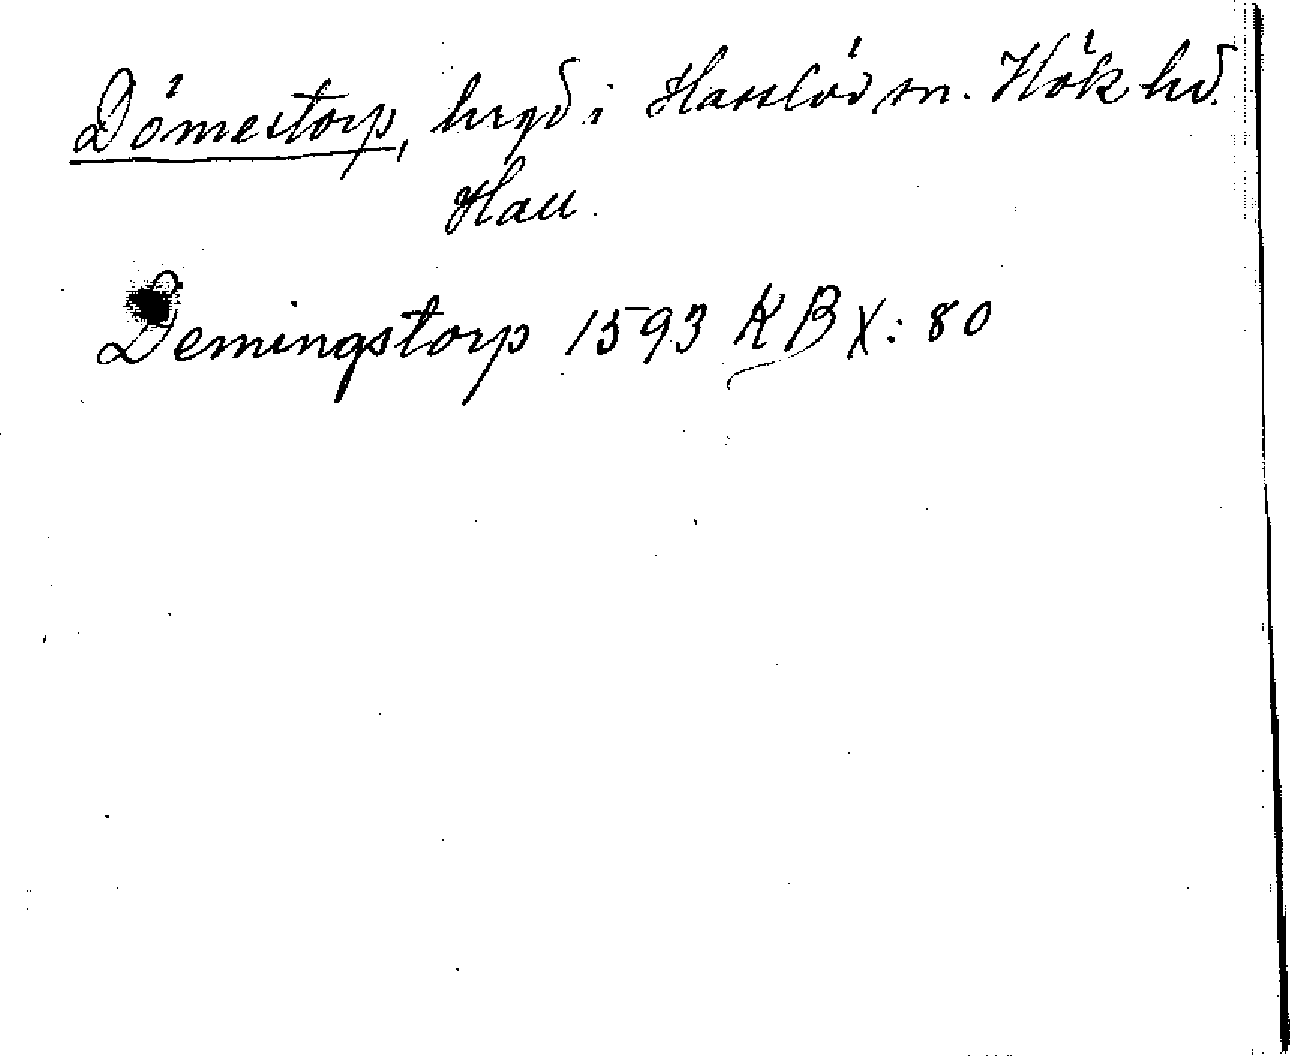 Dömestorp, hrgd i Hasslöv sn. Hök hd.
Hall.
Demingstorp 1593 KB X: 80